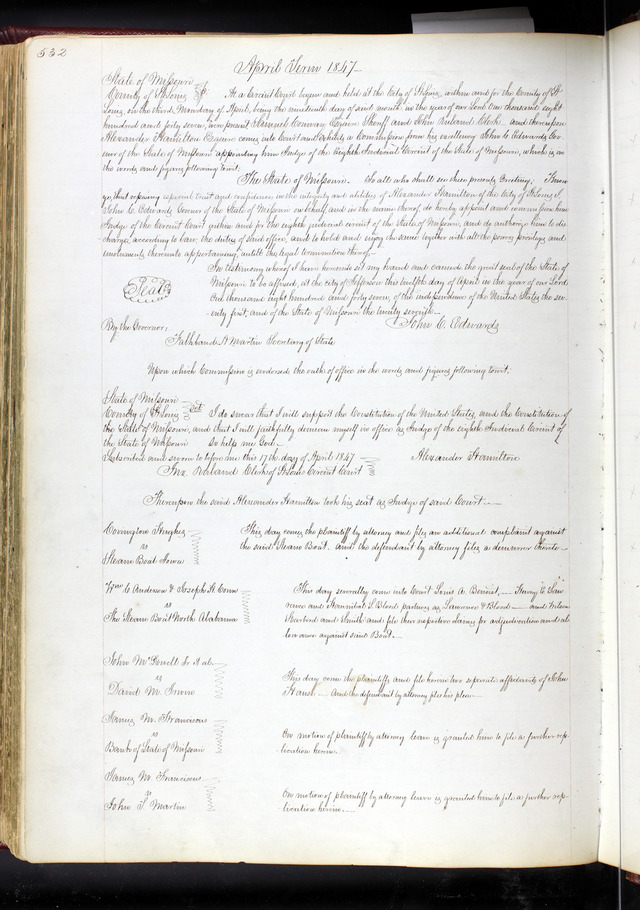 532
April Term 1847
State of Missouri
County of St Louis Sct. At a Circuit Court begun and held at the City of St Louis, within and for the County of St
Louis, on the third Monday of April, being the nineteenth day of said month in the year of our Lord One thousand eight
hundred and forty seven, were present Samuel Conway Esquire Sheriff and John Ruland Clerk. and thereupon
Alexander Hamilton Esquire comes into Court and exhibits a Commission from his excellency John C Edwards, Gov-
ernor of the State of Missouri appointing him Judge of the Eighth Judicial Circuit of the State of Missouri, which is in
the words and figures following towit.
The State of Missouri. To all who shall see these presents Greeting, Know
ye, that reposing especial trust and confidence in the integrity and abilities of Alexander Hamilton of the City of St Louis I,
John C. Edwards Governor of the State of Missouri on behalf and in the name thereof do hereby appoint and commission him
Judge of the Circuit Court within and for the eighth judicial circuit of the State of Missouri, and do authorize him to dis-
charge according to law the duties of said office, and to hold and enjoy the same together with all the powers privileges and
emoluments thereunto appertaining, until the legal termination thereof.
In testimony whereof I have hereunto set my hand and caused the great seal of the State of
Missouri to be affixed, at the city of Jefferson this twelfth day of April in the year of our Lord
Seal
One thousand eight hundred and forty seven, of the independence of the United States the sev-
enty first, and of the State of Missouri the twenty seventh.
John C. Edwards
By the Governor;
Falkland H Martin Secretary of State
Upon which Commission is endorsed the oath of office in the words and figures following towit.
State of Missouri
County of St Louis Sct. I do swear that I will support the Constitution of the United States, and the Constitution of
the State of Missouri, and that I will faithfully demean myself in office as Judge of the eighth Judicial Circuit of
the State of Missouri So help me God.
Subscribed and sworn to before me this 17th day of April 1847 Alexander Hamilton
Jno. Ruland Clerk of St Louis Circuit Court
Thereupon the said Alexander Hamilton took his seat as Judge of said Court.
Covington Hughes
vs
Steam Boat Iowa
This day comes the plaintiff by attorney and files an additional complaint against
the said Steam Boat. and the defendant by attorney files a demurrer thereto
Wm C Anderson & Joseph H Conn
vs
The Steam Boat North Alabama
This day severally come into Court Louis A. Benoist, Henry C
and Hannibal S. Blood partners as & Blood and
and Smith and file their respective claims for adjudication and al-
lowance against said Boat.
John McDowell Sr et al.
vs
David M. Irvine
This day come the plaintiffs and file herein two separate affidavits of John
And the defendant by attorney files his plea
James M. Franciscus
vs
Bank of State of Missouri
On motion of plaintiff by attorney leave is granted him to file a further rep-
lication herein.
James M. Franciscus
vs
John T. Martin
On motion of plaintiff by attorney leave is granted him to file a further rep-
lication herein.